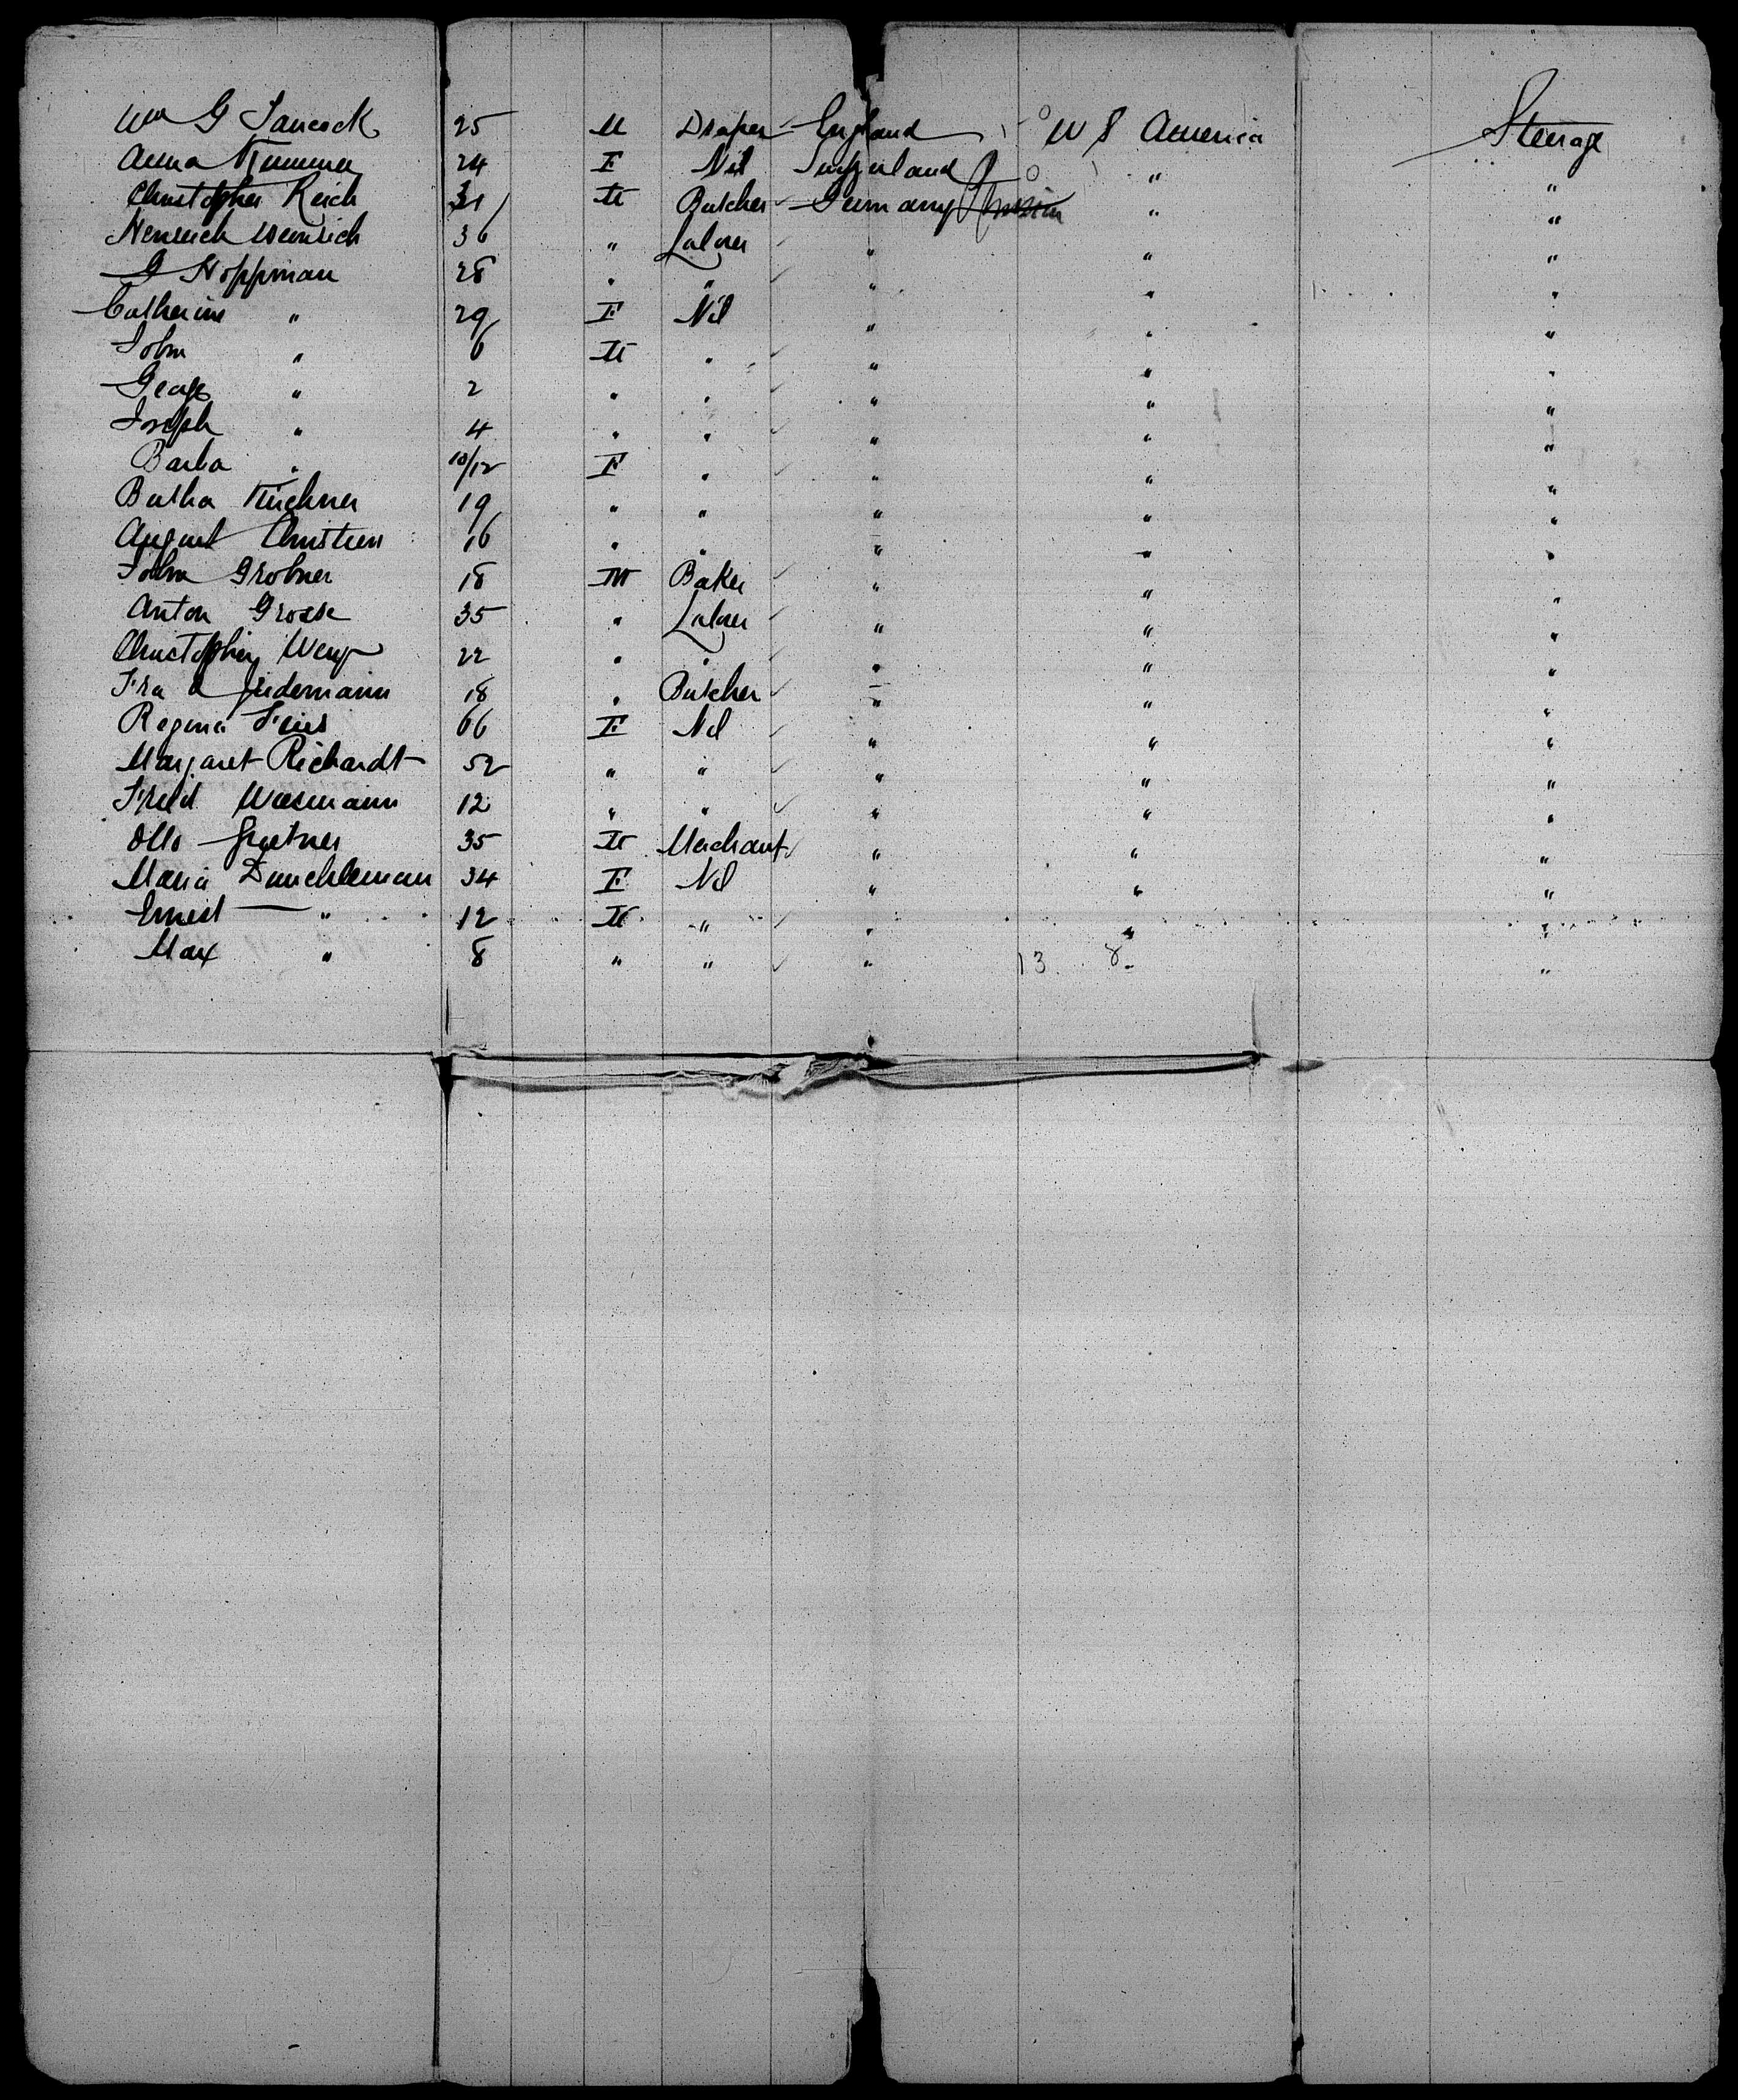 Wm G Sancock 25 M Draper England U S America Steerage
Anna Kummer 24 F Nil Switzerland " "
Christopher Reich 31 M Butcher Germany " "
Henreich Weinrich 36 " Laborer " " "
G Hoppman 28 " " " " "
Catherine " 29 F Nil " " "
John " 6 M " " " "
George " 2 " " " " "
Joseph " 4 " " " " "
Barba " 10/12 F " " " "
Butha Kuchner 19 " " " " "
August Christien 16 " " " " "
John Grobner 18 M Baker " " "
Anton Grosse 35 " Laborer " " "
Christopher 22 " " " " "
18 " Butcher " " "
Regina 66 F Nil " " "
Margaret Richardt 52 " " " " "
Fried Wiesmann 12 " " " " "
Otto 35 M Merchant " " "
Maria Dunckleman 34 F Nil " " "
Ernest " 12 M " " " "
Max " 8 " " " 13 8 "